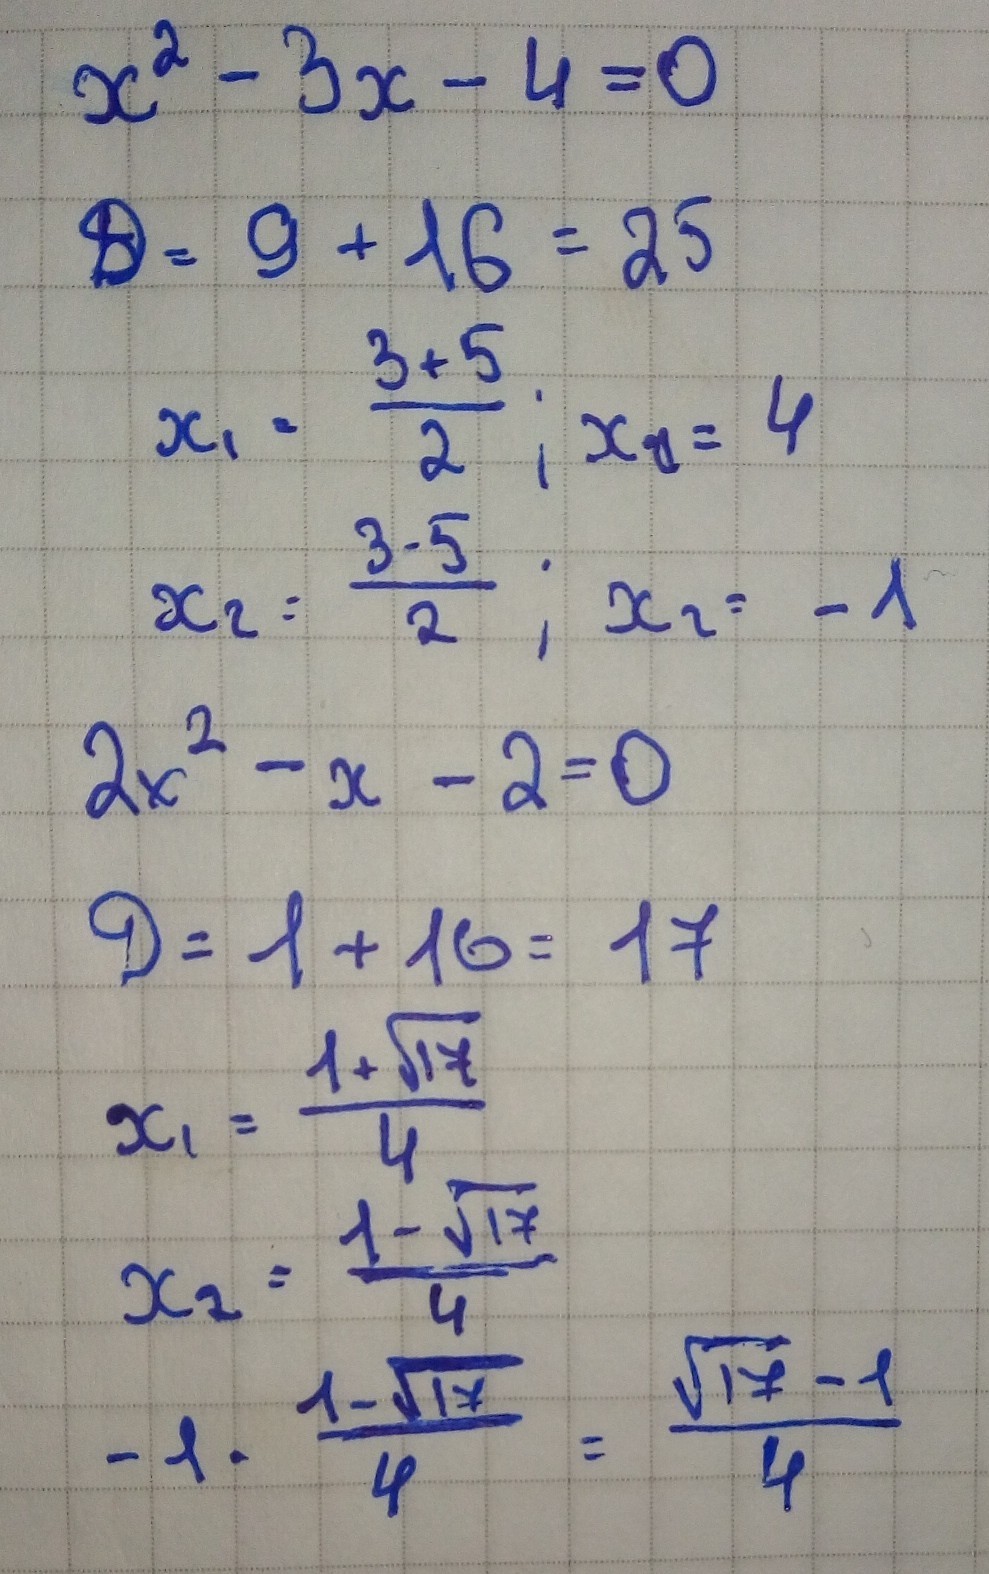 x² - 3x - 4 = 0
D = 9 + 16 = 25
x₁ = (3+5)/2 ; x₁ = 4
x₂ = (3-5)/2 ; x₂ = -1
2x² - x - 2 = 0
D = 1 + 16 = 17
x₁ = (1+√17)/4
x₂ = (1-√17)/4
-1 · (1-√17)/4 = (√17-1)/4